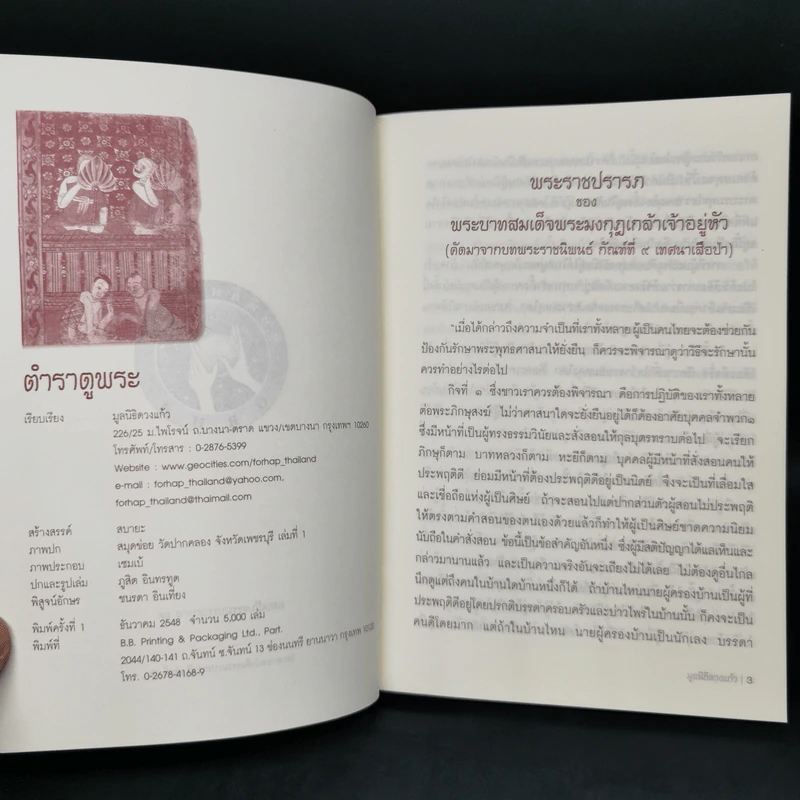 ตำราดูพระ
เรียบเรียง มูลนิธิดวงแก้ว
226/25 ม.ไพโรจน์ ถ.บางนา-ตราด แขวง/เขตบางนา กรุงเทพฯ 10260
โทรศัพท์/โทรสาร : 0-2876-5399
Website : www.geocities.com/forhap_thailand
e-mail : forhap_thailand@yahoo.com,
forhap_thailand@thaimail.com
สร้างสรรค์ สบายะ
ภาพปก สมุดข่อย วัดปากคลอง จังหวัดเพชรบุรี เล่มที่ 1
ภาพประกอบ เซมเบ้
ปกและรูปเล่ม ภูสิต อินทรทูต
พิสูจน์อักษร ชนรดา อินเที่ยง
พิมพ์ครั้งที่ 1 ธันวาคม 2548 จำนวน 5,000 เล่ม
พิมพ์ที่ B.B. Printing & Packaging Ltd., Part.
2044/140-141 ถ.จันทน์ ซ.จันทน์ 13 ช่องนนทรี ยานนาวา กรุงเทพฯ
โทร. 0-2678-4168-9
พระราชปรารภ
ของ
พระบาทสมเด็จพระมงกุฎเกล้าเจ้าอยู่หัว
(คัดมาจากบทพระราชนิพนธ์ กัณฑ์ที่ ๙ เทศนาเสือป่า)
"เมื่อได้กล่าวถึงความจำเป็นที่เราทั้งหลาย ผู้เป็นคนไทยจะต้องช่วยกัน
ป้องกันรักษาพระพุทธศาสนาให้ยั่งยืน ก็ควรจะพิจารณาดูว่าวิธีจะรักษานั้น
ควรทำอย่างไรต่อไป
กิจที่ ๑ ซึ่งชาวเราควรต้องพิจารณา คือการปฏิบัติของเราทั้งหลาย
ต่อพระภิกษุสงฆ์ ไม่ว่าศาสนาใดจะยั่งยืนอยู่ได้ก็ต้องอาศัยบุคคลจำพวก๑
ซึ่งมีหน้าที่เป็นผู้ทรงธรรมวินัยและสั่งสอนให้กุลบุตรทราบต่อไป จะเรียก
ภิกษุก็ตาม บาทหลวงก็ตาม หะยีก็ตาม บุคคลผู้มีหน้าที่สั่งสอนคนให้
ประพฤติดี ย่อมมีหน้าที่ต้องประพฤติดีอยู่เป็นนิตย์ จึงจะเป็นที่เลื่อมใส
และเชื่อถือแห่งผู้เป็นศิษย์ ถ้าจะสอนไปแต่ปากส่วนตัวผู้สอนไม่ประพฤติ
ให้ตรงตามคำสอนของตนเองด้วยแล้วก็ทำให้ผู้เป็นศิษย์ขาดความนิยม
นับถือในคำสั่งสอน ข้อนี้เป็นข้อสำคัญอันหนึ่ง ซึ่งผู้มีสติปัญญาได้แลเห็นและ
กล่าวมานานแล้ว และเป็นความจริงอันจะเถียงไม่ได้เลย ไม่ต้องดูอื่นไกล
นึกดูแต่ถึงคนในบ้านใดบ้านหนึ่งก็ได้ ถ้าบ้านไหนนายผู้ครองบ้านเป็นผู้ที่
ประพฤติดีอยู่โดยปรกติบรรดาครอบครัวและบ่าวไพร่ในบ้านนั้น ก็คงจะเป็น
คนดีโดยมาก แต่ถ้าในบ้านไหน นายผู้ครองบ้านเป็นนักเลง บรรดา
มูลนิธิดวงแก้ว | 3